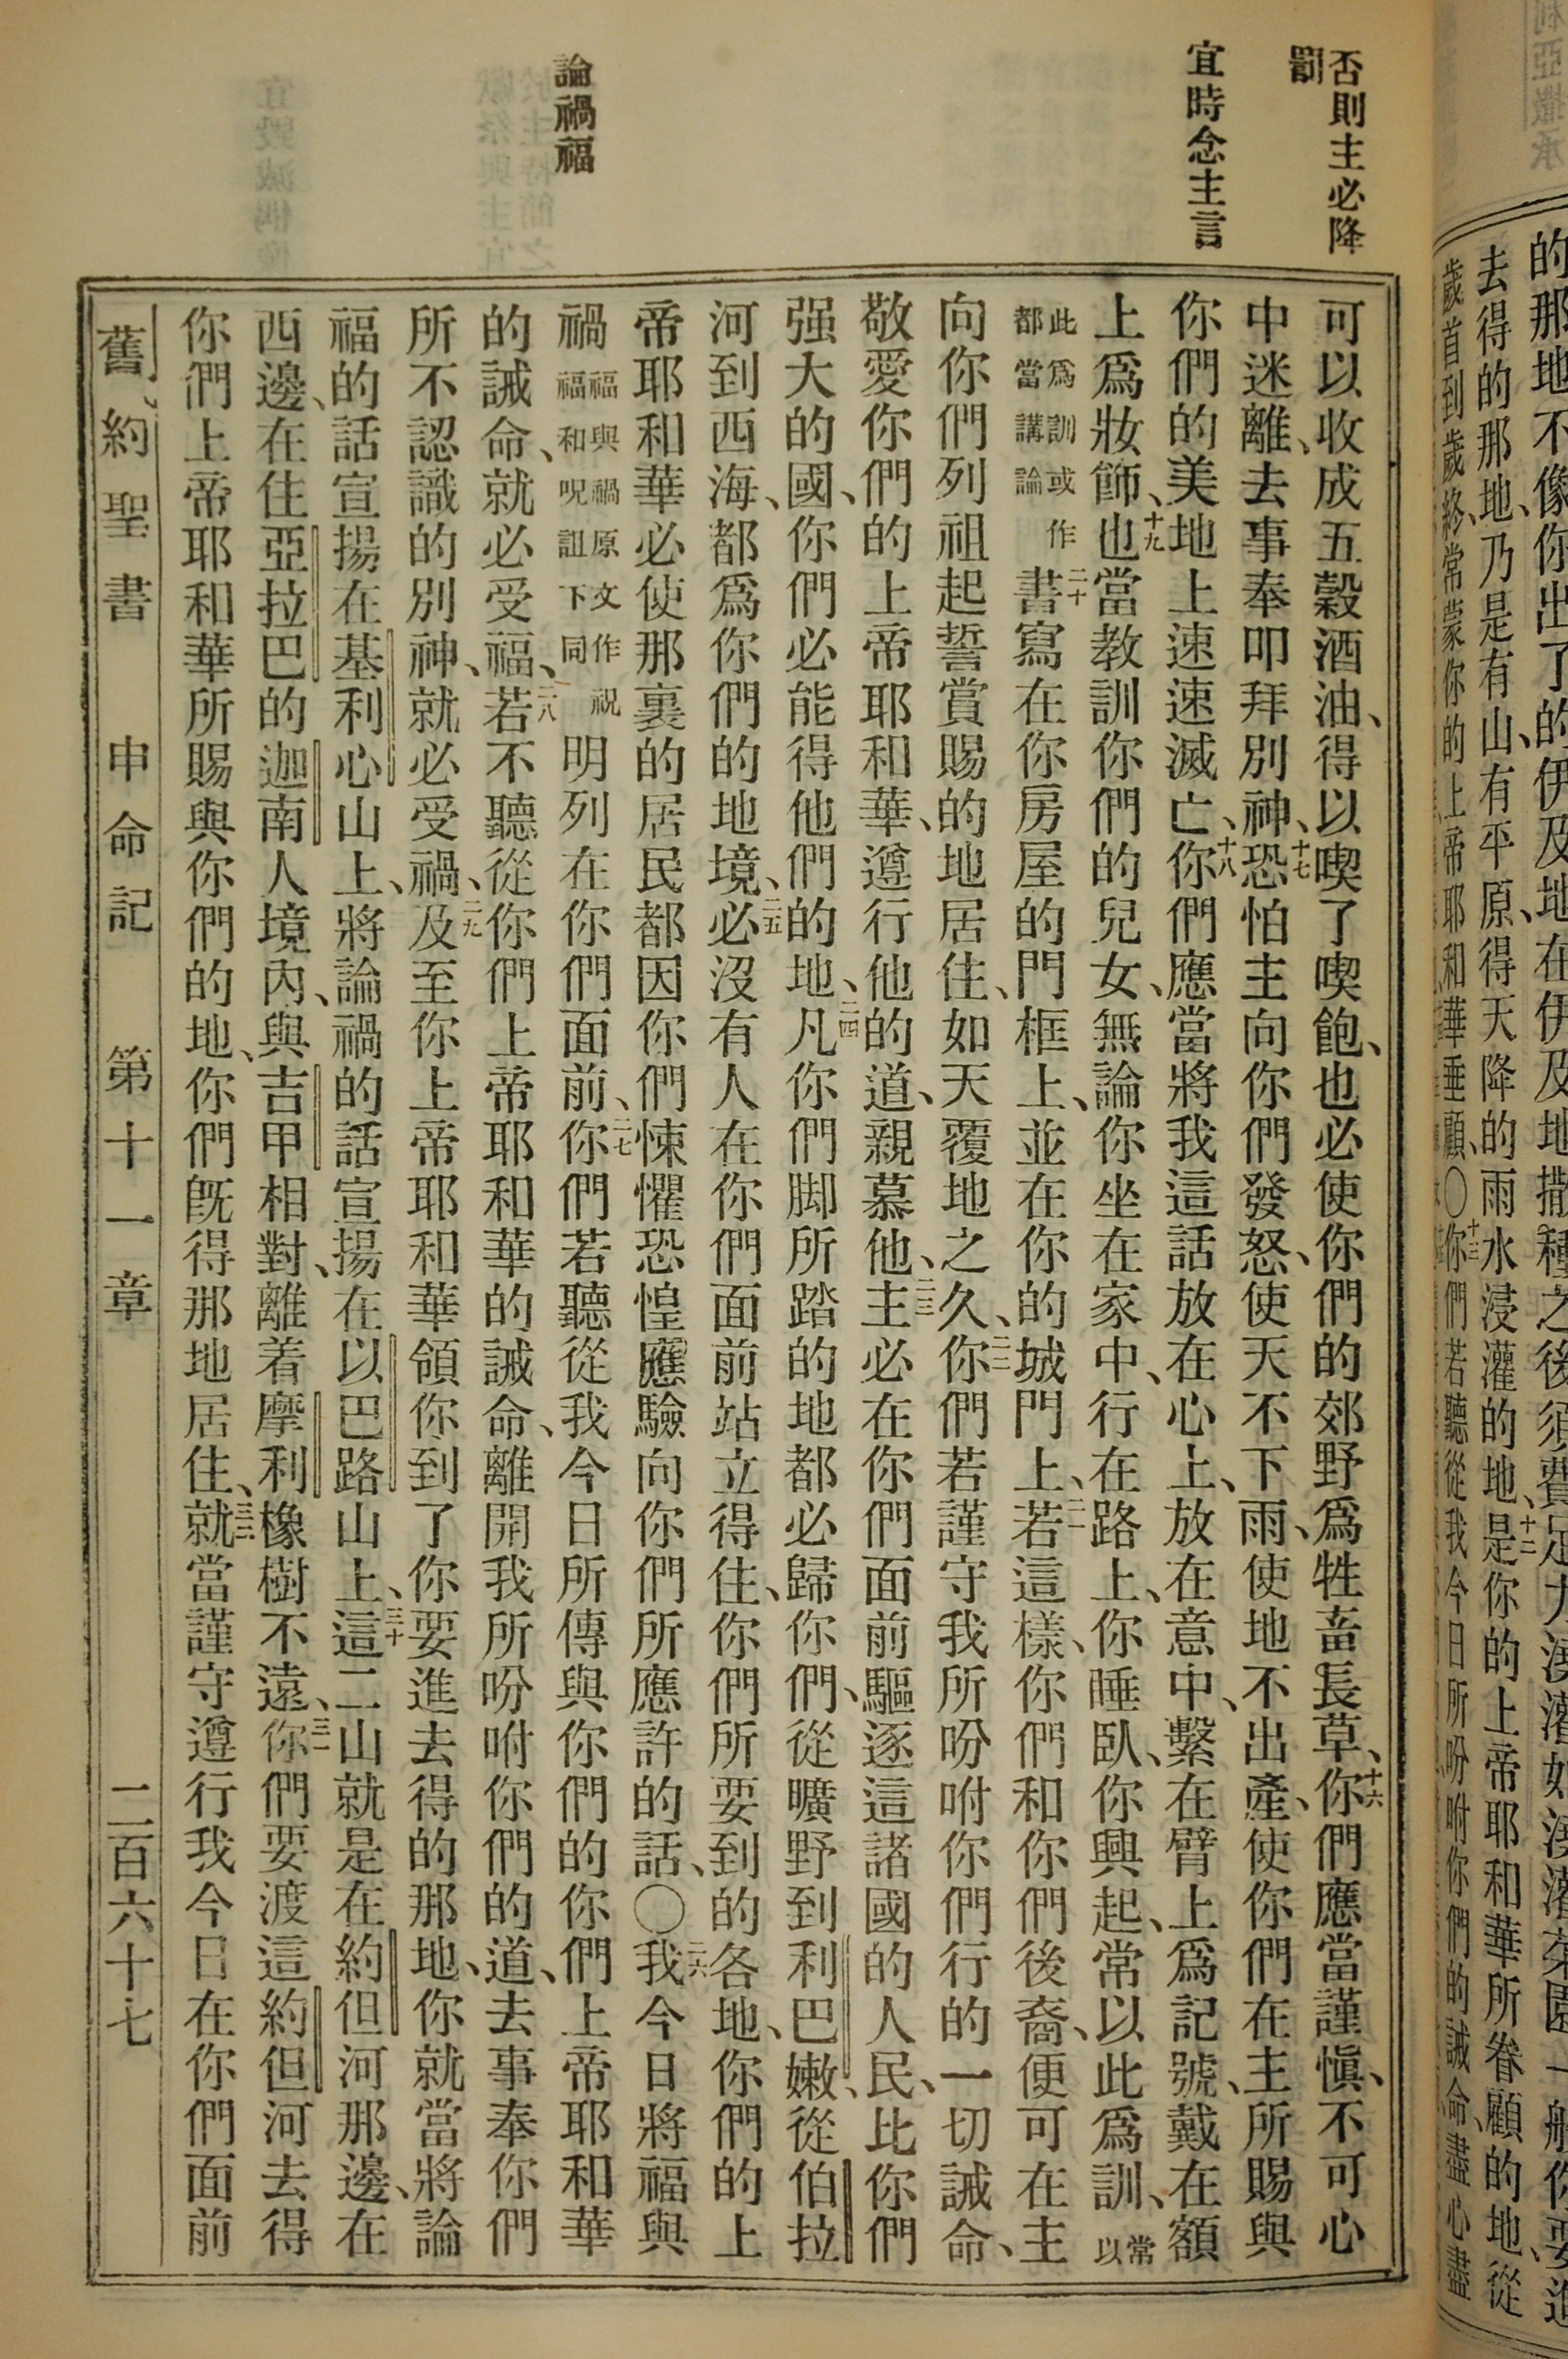 的那地不像你出了的伊及地在伊及地撒種之後須費足力澆灌如澆灌菜園一般你要進
去得的那地、乃是有山、有平原、得天降的雨水浸灌的地、十二是你的上帝耶和華所眷顧的地、從
歲首到歲終、常蒙你的上帝耶和華垂顧、〇十三你們若聽從我今日所吩咐你們的誡命、盡心盡
否則主必降
罰
宜時念主言
論禍福
可以收成五穀酒油、得以喫了喫飽、也必使你們的郊野爲牲畜長草、十六你們應當謹愼、不可心
中迷離、去事奉叩拜別神、十七恐怕主向你們發怒、使天不下雨、使地不出產、使你們在主所賜與
你們的美地上速速滅亡、十八你們應當將我這話放在心上、放在意中、繫在臂上爲記號、戴在額
上爲妝飾、十九也當教訓你們的兒女、無論你坐在家中、行在路上、你睡臥、你興起、常以此爲訓、常以
此爲訓或作都當講論二十書寫在你房屋的門框上、並在你的城門上、二一若這樣、你們和你們後裔、便可在主
向你們列祖起誓賞賜的地居住、如天覆地之久、二二你們若謹守我所吩咐你們行的一切誡命、
敬愛你們的上帝耶和華、遵行他的道、親慕他、二三主必在你們面前驅逐這諸國的人民、比你們
强大的國、你們必能得他們的地、二四凡你們脚所踏的地都必歸你們、從曠野到利巴嫩、從伯拉
河到西海、都爲你們的地境、二五必沒有人在你們面前站立得住、你們所要到的各地、你們的上
帝耶和華必使那裏的居民都因你們悚懼恐惶應驗向你們所應許的話、〇二六我今日將福與
禍福與禍原文作祝福和呪詛下同明列在你們面前、二七你們若聽從我今日所傳與你們的你們上帝耶和華
的誡命、就必受福、二八若不聽從你們上帝耶和華的誡命、離開我所吩咐你們的道、去事奉你們
所不認識的別神、就必受禍、二九及至你上帝耶和華領你到了你要進去得的那地、你就當將論
福的話宣揚在基利心山上、將論禍的話宣揚在以巴路山上、三十這二山就是在約但河那邊、在
西邊、在住亞拉巴的迦南人境內、與吉甲相對、離着摩利橡樹不遠、三一你們要渡這約但河去得
你們上帝耶和華所賜與你們的地、你們旣得那地居住、三二就當謹守遵行我今日在你們面前
舊約聖書 申命記 第十一章 二百六十七